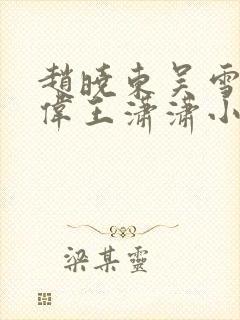 趙曉東吴雪
偉王瀟瀟小
梁某靈